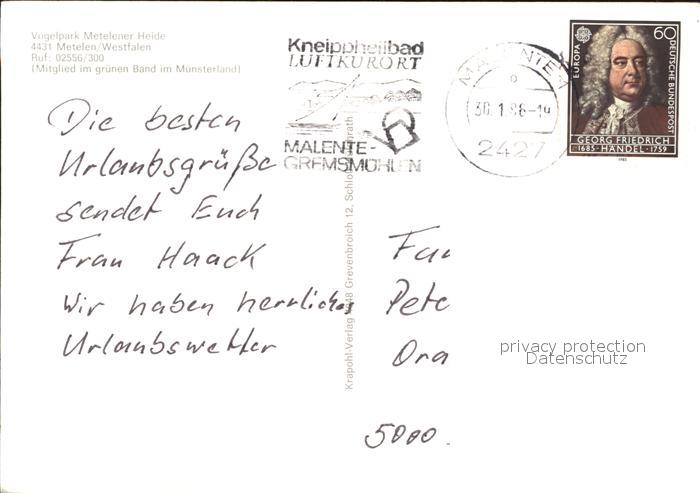 Vogelpark Metelener Heide
4431 Metelen/Westfalen
Ruf: 02556/300
(Mitglied im grünen Band im Münsterland)
Kneippheilbad
LUFTKURORT
MALENTE-
GREMSMÜHLEN
MALENTE 1
30.1.86-19
2427
EUROPA
60
DEUTSCHE BUNDESPOST
GEORG FRIEDRICH
1685 · HÄNDEL · 1759
1985
Die besten
Urlaubsgrüße
sendet Euch
Frau Haack
Wir haben herrliches
Urlaubswetter
Krapohl-Verlag 4048 Grevenbroich 12, Schloß
Fam
Pete
Ora
5000.
privacy protection
Datenschutz